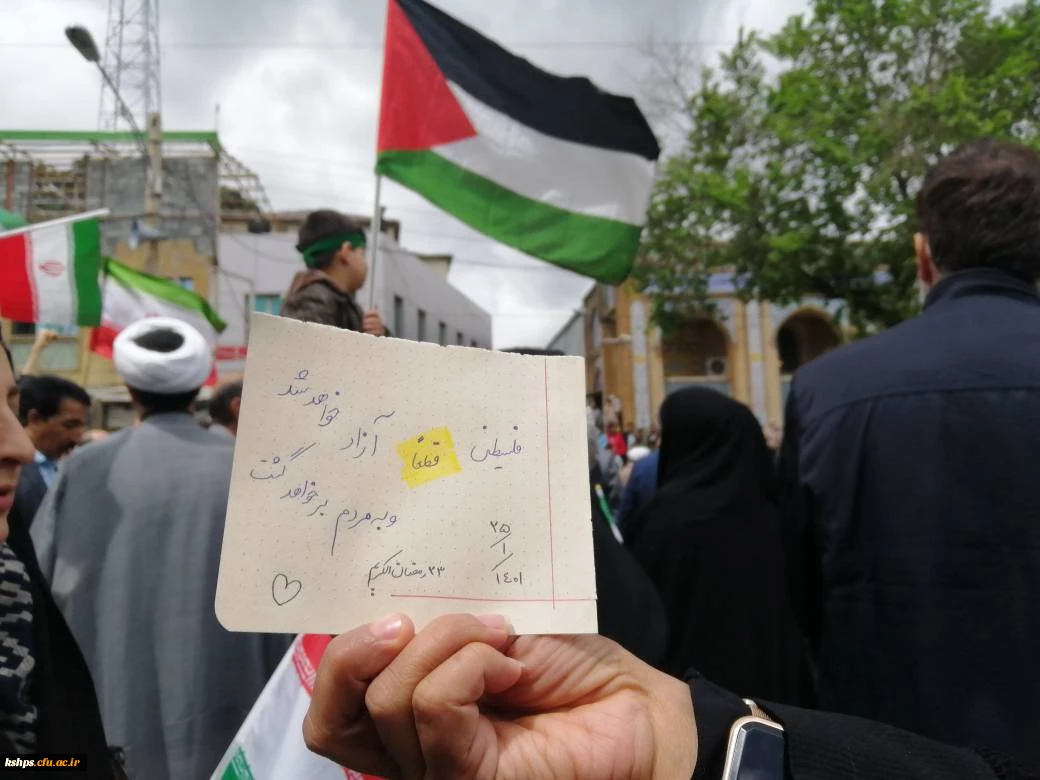 فلسطین قطعاً آزاد خواهد شد
و به مردم برخواهد گشت
۲۵/۱/۱۴۰۱
۲۳ رمضان الکریم
kshps.cfu.ac.ir